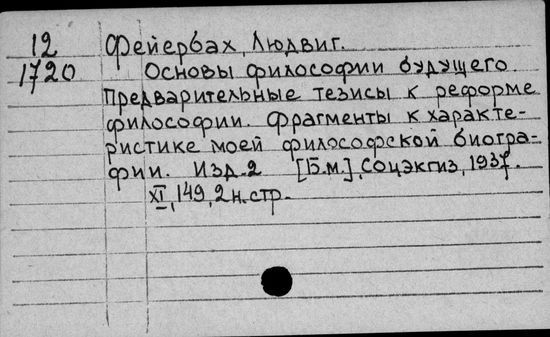 12 Фейербах, Людвиг.
1720 Основы философии будущего.
Предварительные тезисы к реформе
философии. Фрагменты к характе-
ристике моей философской биогра-
фии. Изд. 2 [Б.м.], Соцэкгиз, 1937.
XI, 149, 2 н. стр.